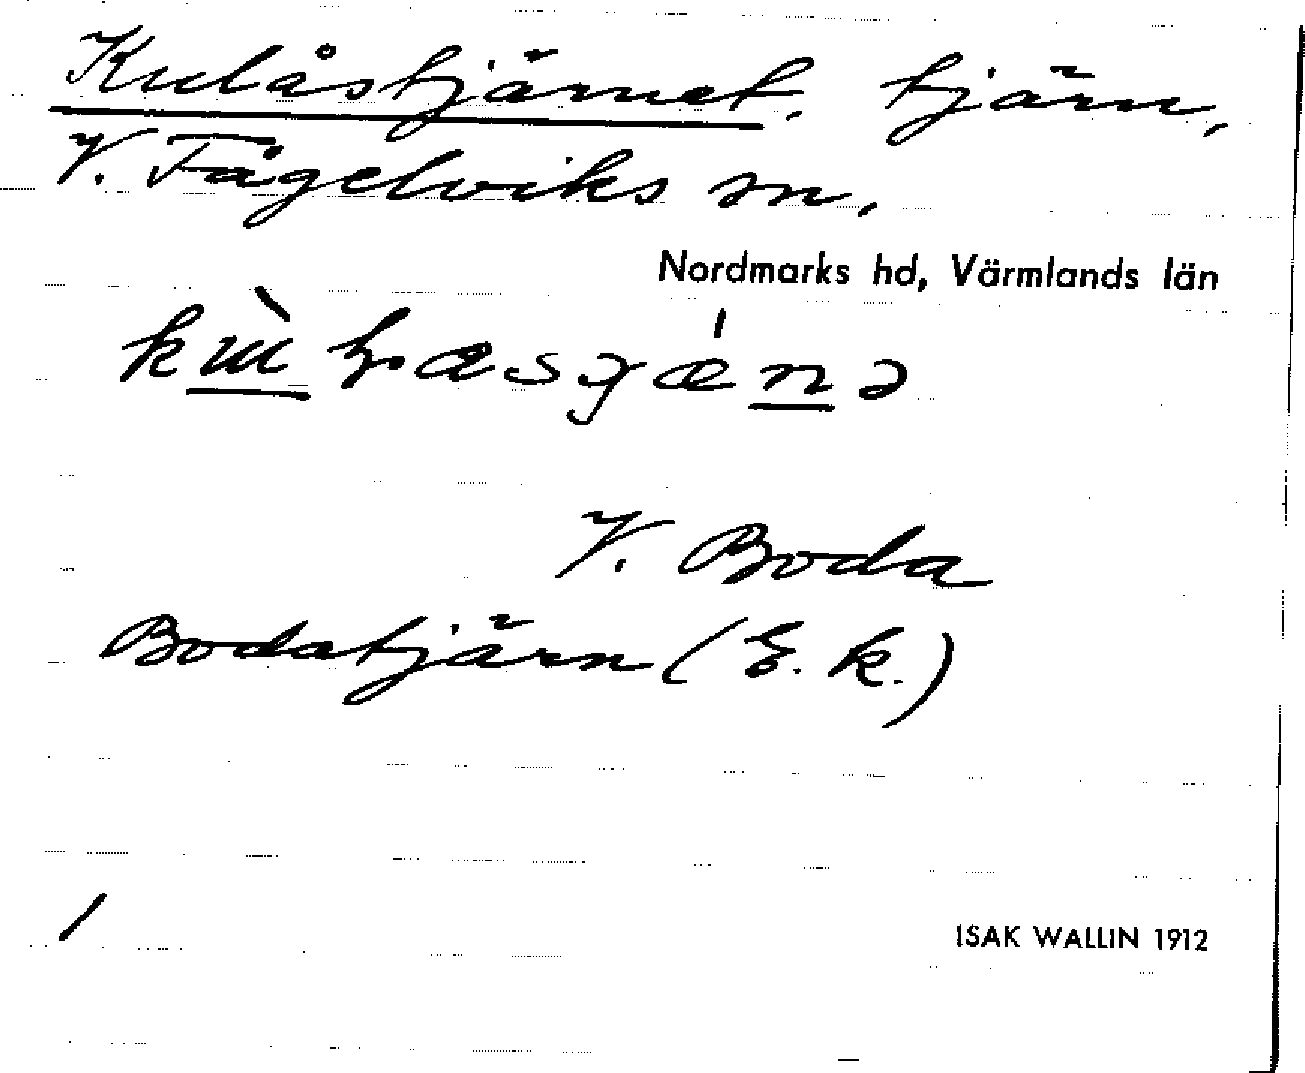 Kulåstjärnet, tjärn,
V. Fågelviks sn,
Nordmarks hd, Värmlands län
V. Boda
Bodatjärn (E.k.)
ISAK WALLIN 1912